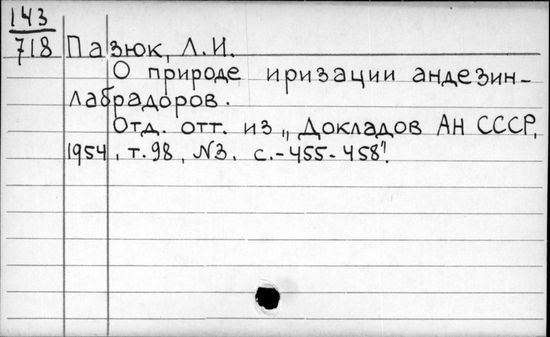 143
718 Пазюк, Л.И.
О природе иризации андезин-
лабрадоров.
Отд. отт. из „Докладов АН СССР,
1954, т.98, №3. с.-455-458".